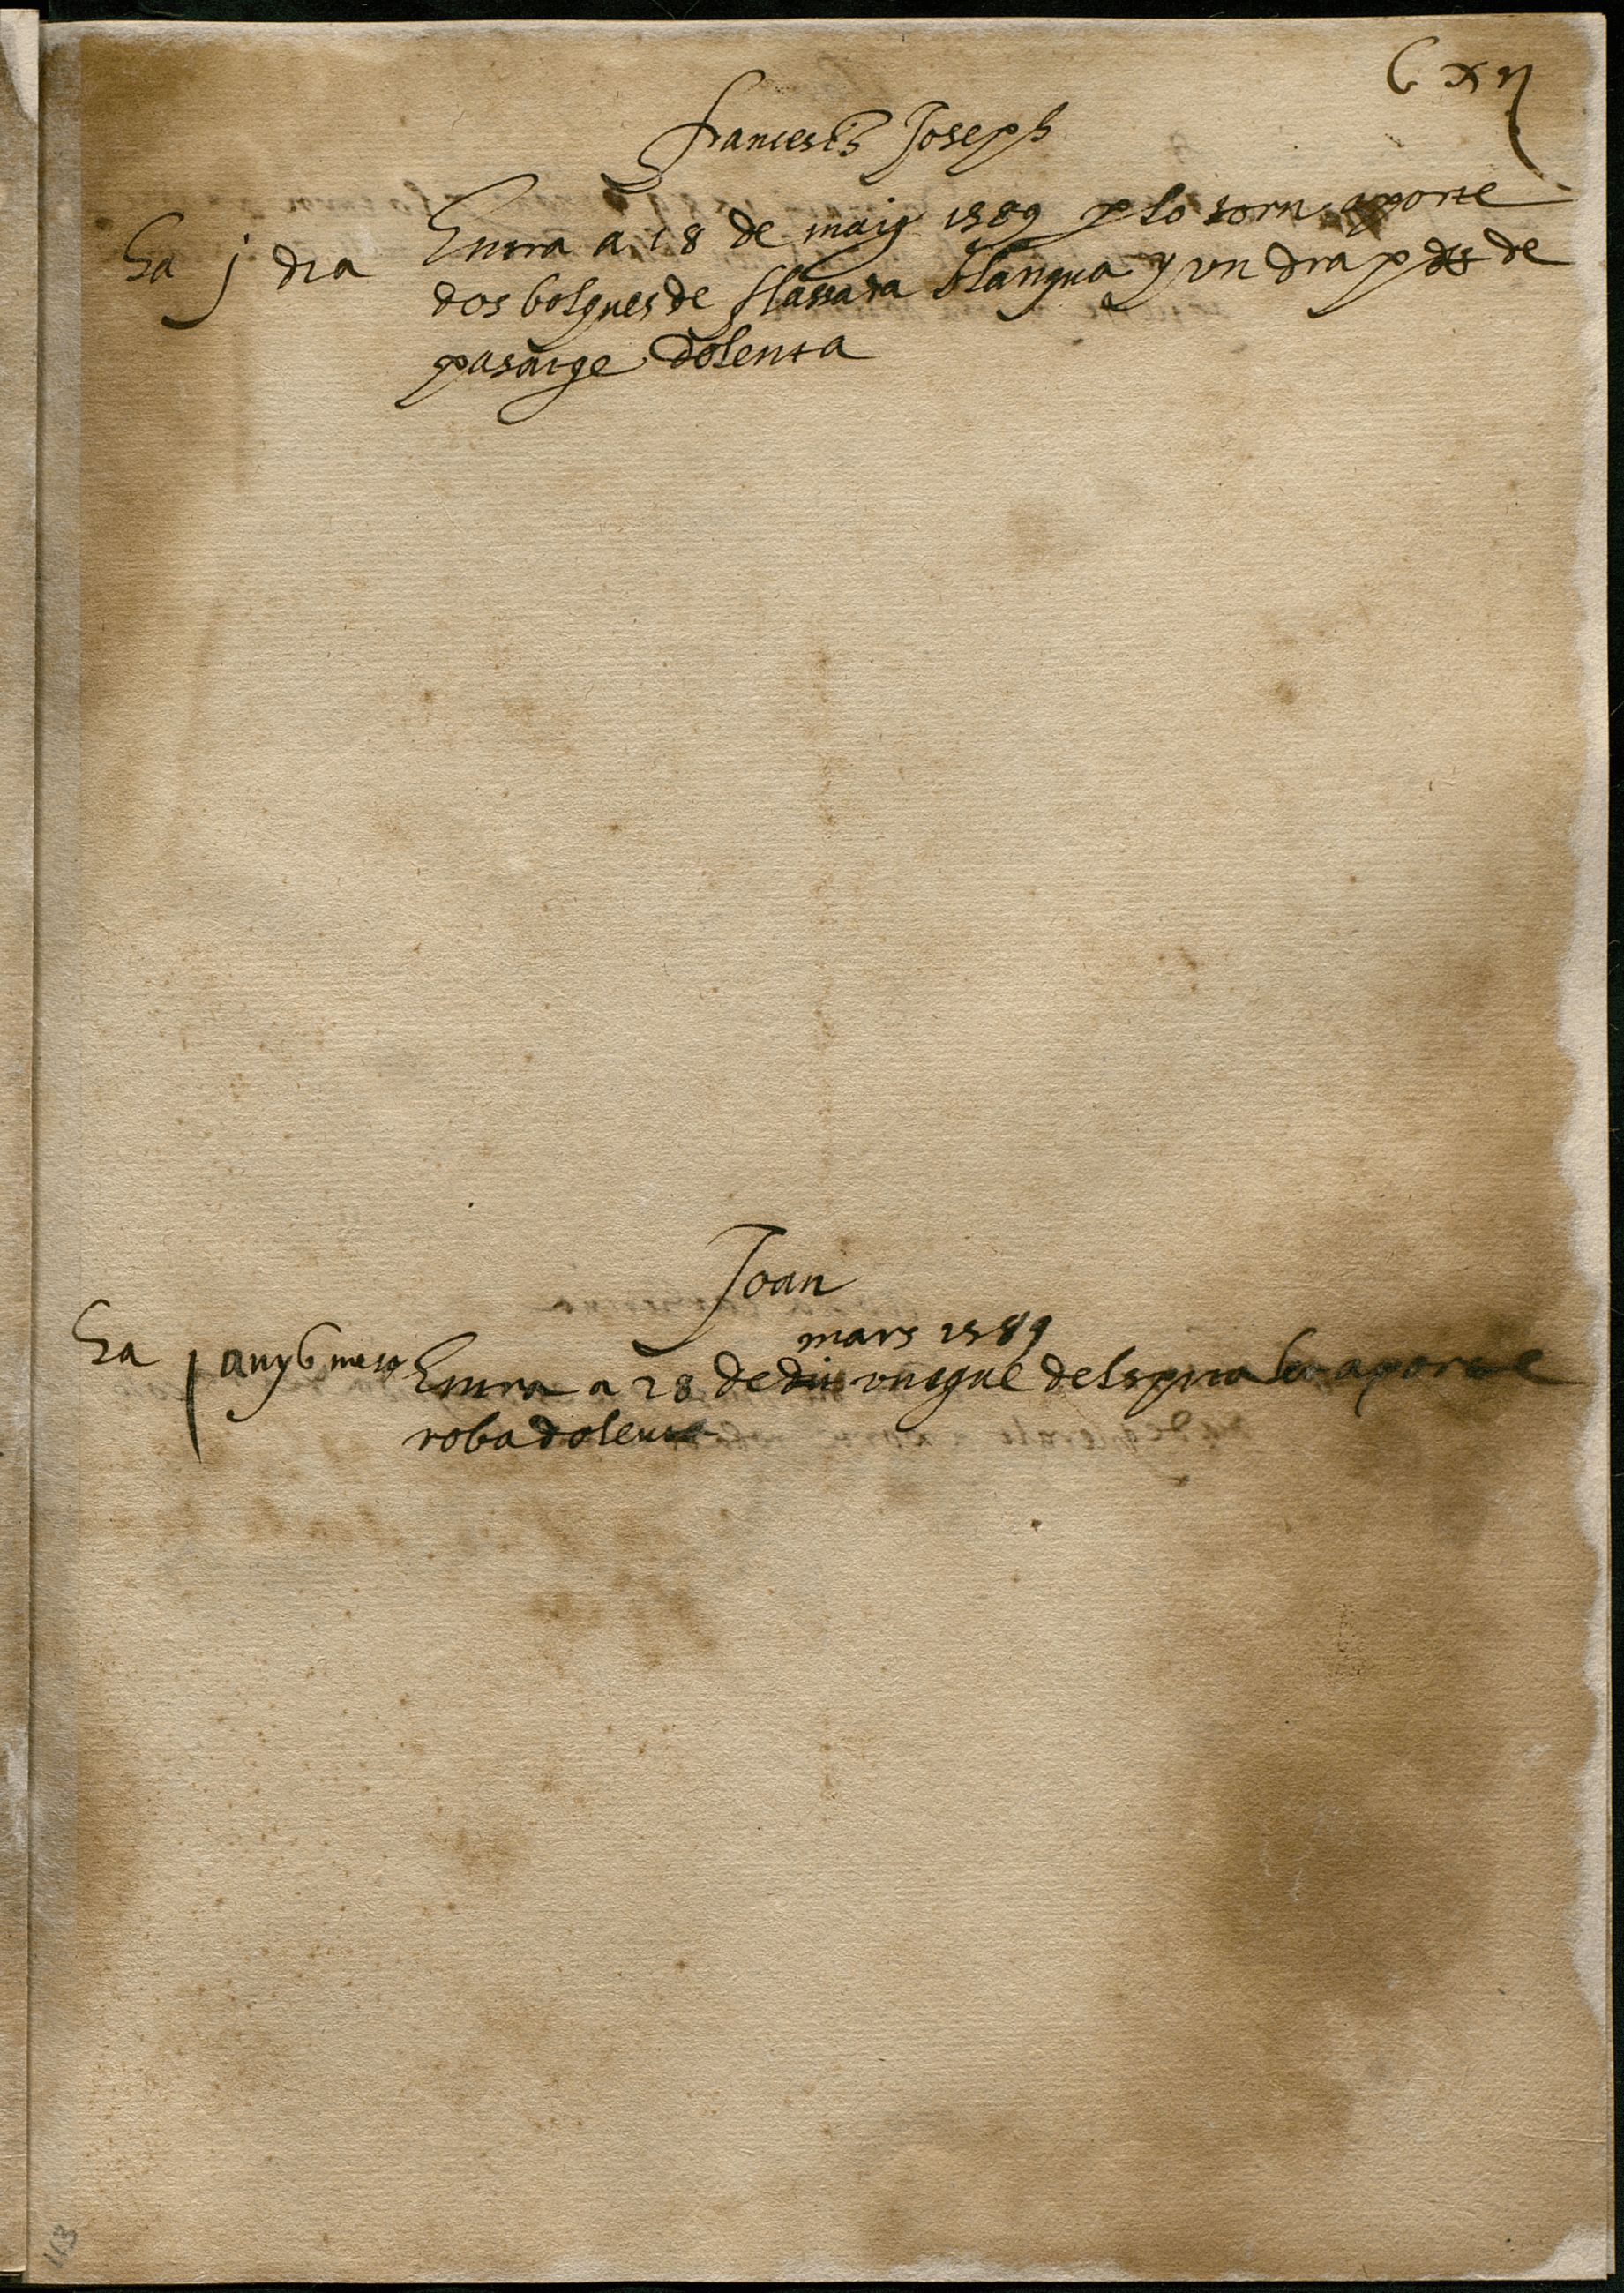 C xij
Francesch Joseph
Ha j dia
Entra a 18 de maig 1589 p lo torn aporte
dos bolques de flassada blanqua y un drap de
pasatge dolenta
Joan
mars 1589
Ha j any 6 mesos
Entra a 28 de vingue del spital aporte
roba dolenta
113